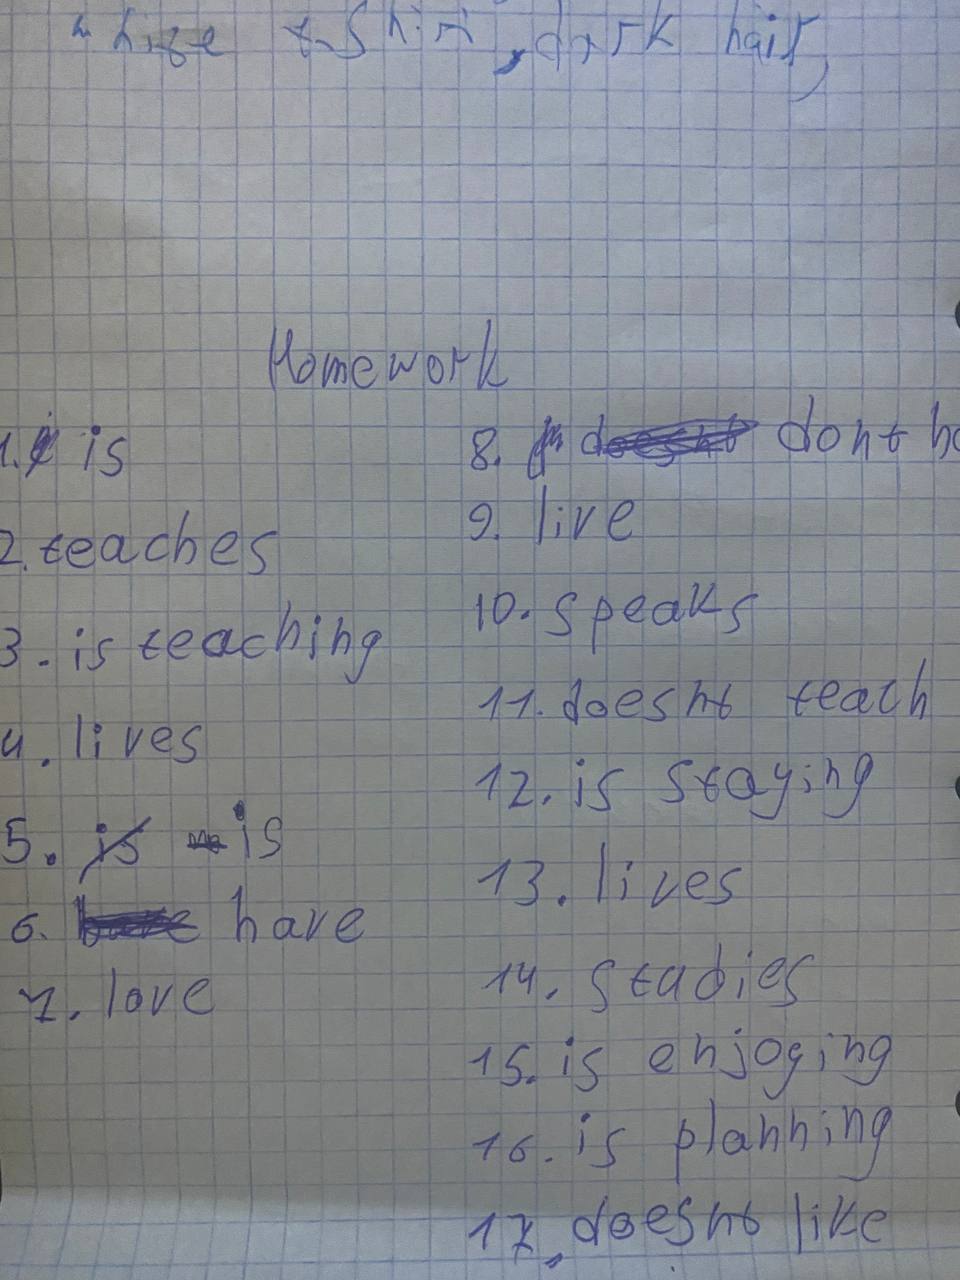 t-shirt, dark hair,
Homework
1. is
2. teaches
3. is teaching
4. lives
5. is is
6. have
7. love
8. dont
9. live
10. speaks
11. doesnt teach
12. is staying
13. lives
14. studies
15. is enjoging
16. is planning
17. doesnt like